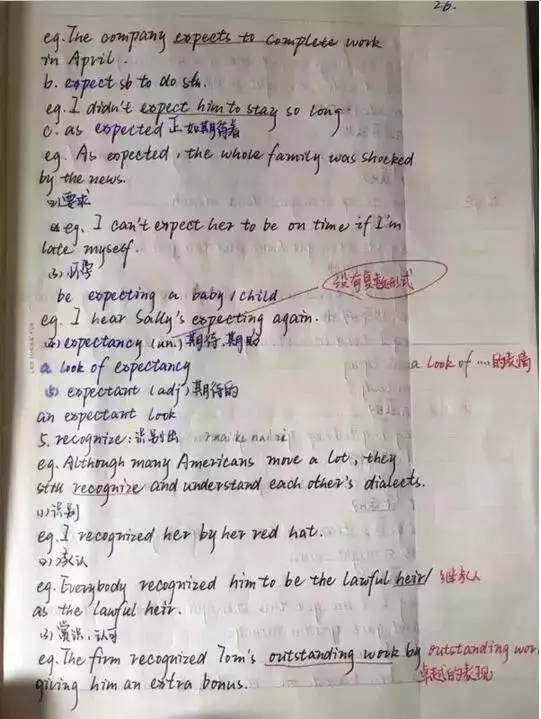 26.
eg. The company expects to complete work
in April.
b. expect sb to do sth.
eg. I didn't expect him to stay so long
c. as expected 正如期待着
eg. As expected, the whole family was shocked
by the news.
(2) 要求
eg. I can't expect her to be on time if I'm
late myself.
(3) 怀孕
没有复数形式
be expecting a baby / child
eg. I hear Sally's expecting again.
(4) expectancy (un.) 期待,期盼
a look of expectancy
a look of .... 的表情
(5) expectant (adj) 期待的
an expectant look
5. recognize: 识别出
eg. Although many Americans move a lot, they
still recognize and understand each other's dialects.
(1) 识别
eg. I recognized her by her red hat.
(2) 承认
eg. Everybody recognized him to be the lawful heir / 继承人
as the lawful heir.
(3) 赏识,认可
eg. The firm recognized Tom's outstanding work by outstanding wor
giving him an extra bonus. 卓越的表现